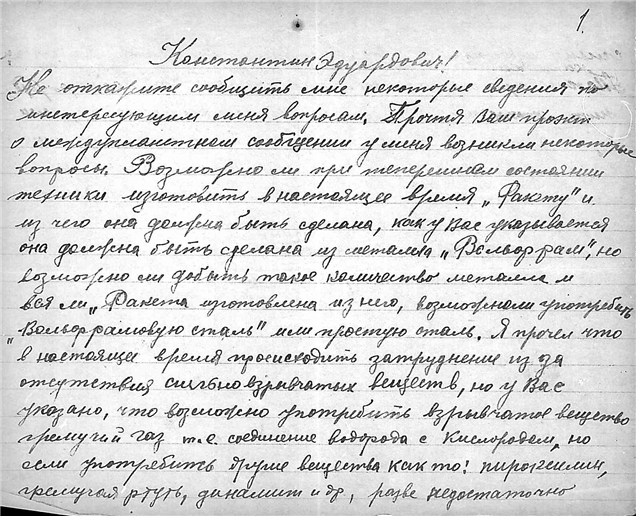 1.
Константин Эдуардович!
Не откажите сообщить мне некоторые сведения по
интересующим меня вопросам. Прочтя Ваш проэкт
о междупланетном сообщении у меня возникли некоторые
вопросы. Возможно ли при теперешнем состоянии
техники изготовить в настоящее время „Ракету" и
из чего она должна быть сделана, как у Вас указывается
она должна быть сделана из металла „Вольфрам", но
возможно ли добыть такое количество металла и
вся ли „Ракета изготовлена из него, возможно ли употребить
„Вольфрамовую сталь" или простую сталь. Я прочел что
в настоящее время происходить затруднение из за
отсутствия сильно взрывчатых веществ, но у Вас
указано, что возможно употребить взрывчатое вещество
гремучий газ т.е. соединение водорода с Кислородом, но
если употребить другие вещества как то: пироксилин,
гремучая ртуть, динамит и др, разве недостаточно